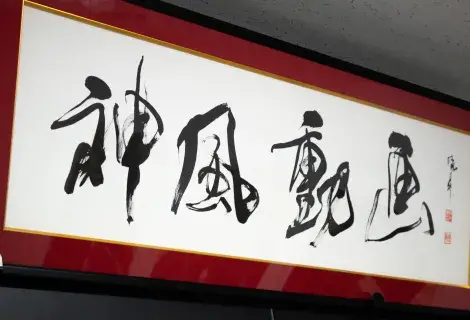 神風動画